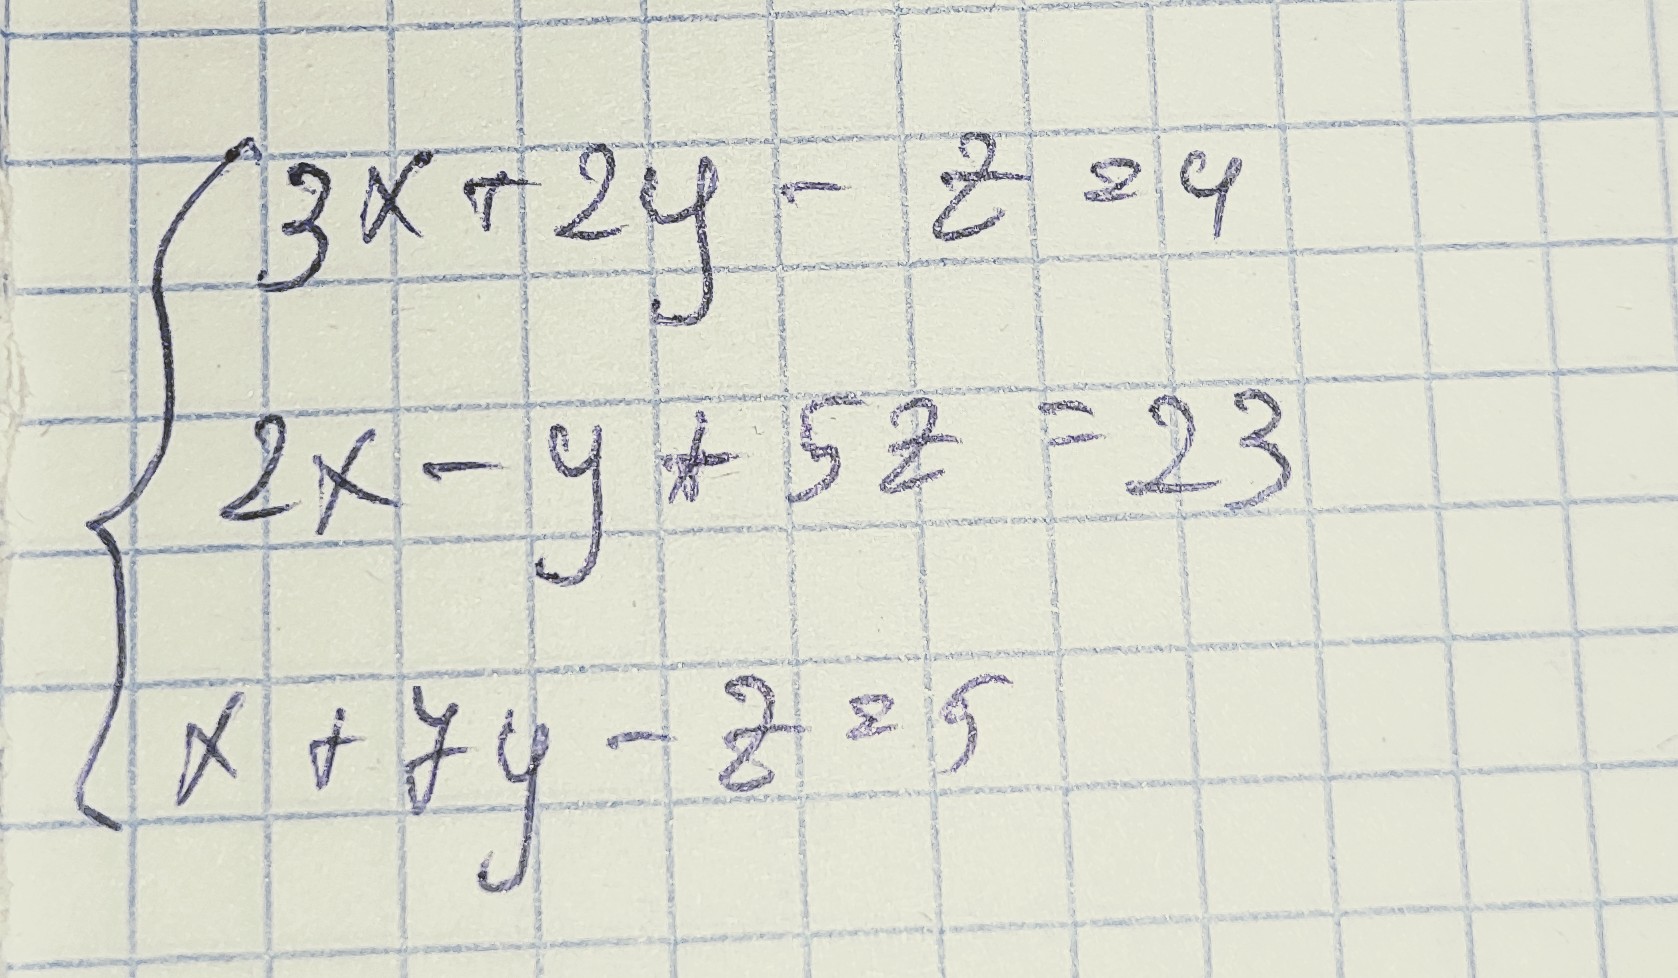 3x + 2y - z = 4
2x - y + 5z = 23
x + 7y - z = 5